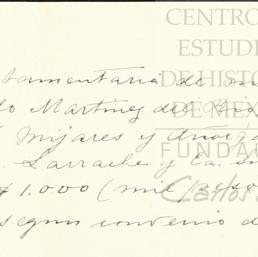 CENTRO
ESTUDI
DE HISTO
DE MÉX
FUNDAC
Carlos
tamentaria de mi
lo Martinez del
Mijares y
Larrache y Ca. Su
$1.000 (mil) peso
segun convenio d